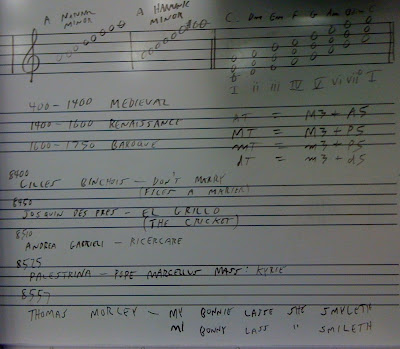 A NATURAL MINOR
A HARMONIC MINOR
C Dm Em F G Am Bdim C
I ii iii IV V vi vii° I
400-1400 MEDIEVAL
1400-1600 RENAISSANCE
1600-1750 BAROQUE
AT = M3 + A5
MT = M3 + P5
mT = m3 + P5
dT = m3 + d5
8400
GILLES BINCHOIS - DON'T MARRY
(FILES A MARIER)
8450
JOSQUIN DES PRES - EL GRILLO
(THE CRICKET)
8510
ANDREA GABRIELI - RICERCARE
8525
PALESTRINA - POPE MARCELLUS MASS: KYRIE
8557
THOMAS MORLEY - MY BONNIE LASSE SHE SMYLETH
MY BONNY LASS " SMILETH